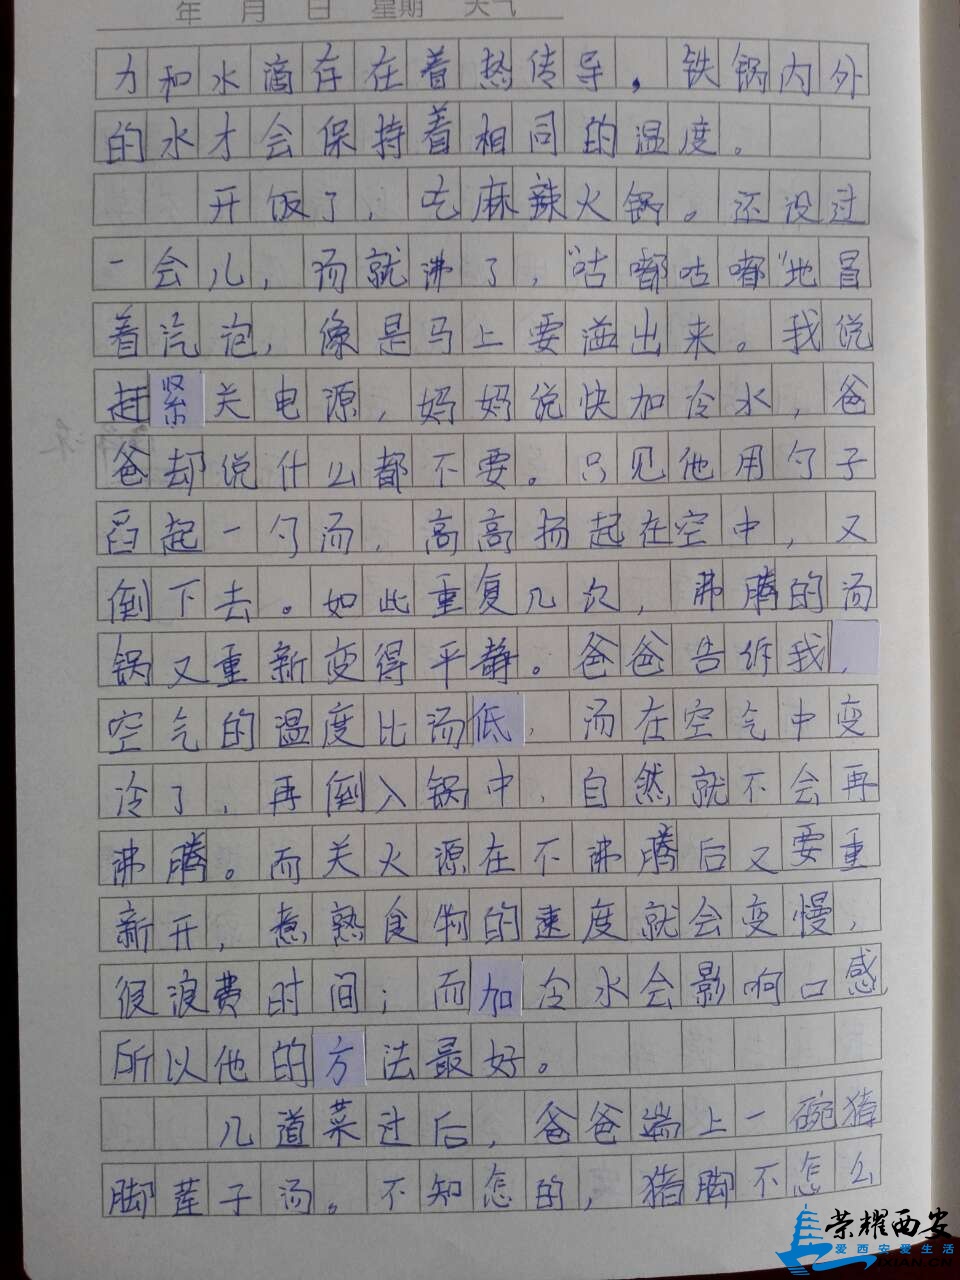 年 月 日 星期 天气
力和水滴存在着热传导，铁锅内外
的水才会保持着相同的温度。
开饭了，吃麻辣火锅。还没过
一会儿，汤就沸了，“咕嘟咕嘟”地冒
着汽泡，像是马上要溢出来。我说
赶紧关电源，妈妈说快加冷水，爸
爸却说什么都不要。只见他用勺子
舀起一勺汤，高高扬起在空中，又
倒下去。如此重复几次，沸腾的汤
锅又重新变得平静。爸爸告诉我，
空气的温度比汤低，汤在空气中变
冷了，再倒入锅中，自然就不会再
沸腾。而关火源在不沸腾后又要重
新开，煮熟食物的速度就会变慢，
很浪费时间；而加冷水会影响口感，
所以他的方法最好。
几道菜过后，爸爸端上一碗猪
脚莲子汤。不知怎的，猪脚不怎么
荣耀西安
爱西安爱生活
IXIAN.CN